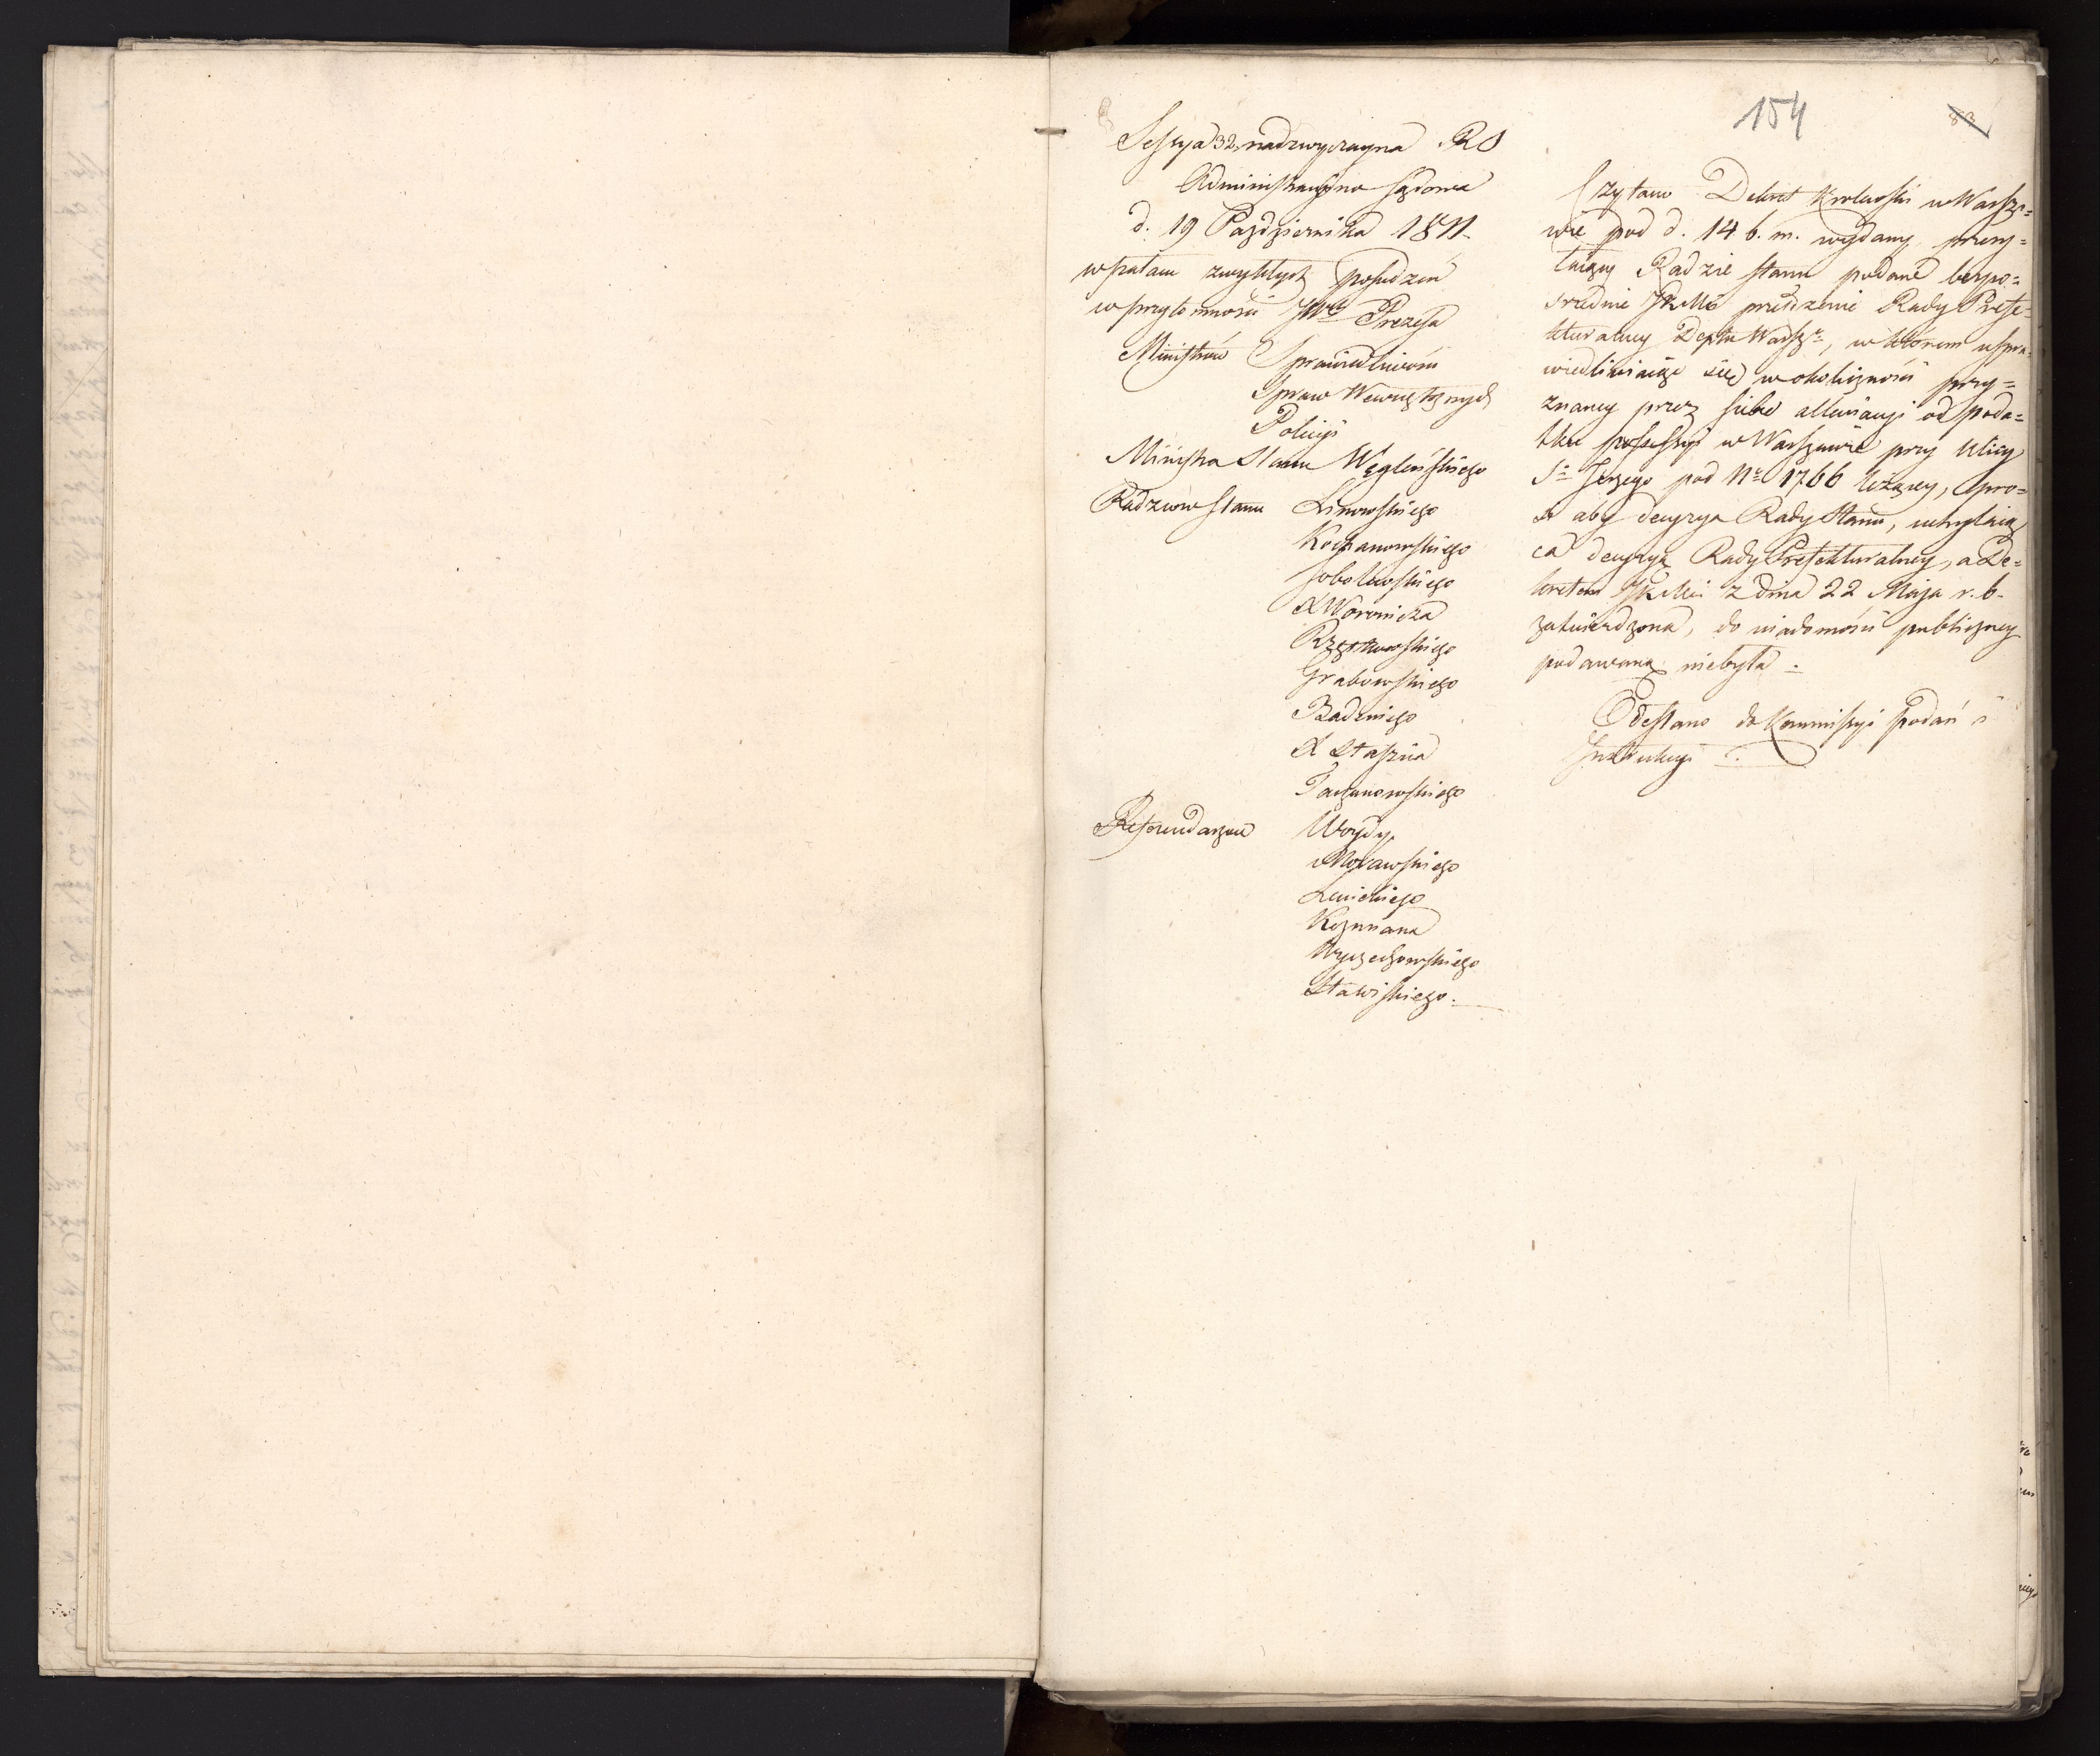 154
83
Sessya 32. nadzwyczayna RS
Administracyino sądowa
d. 19 Października 1811.
w pałacu zwykłych posiedzeń
w przytomności JW Prezesa
Ministrów Sprawiedliwości
Spraw Wewnętrznych
Policyi
Ministra Stanu Węgleńskiego
Radzców Stanu Linowskiego
Kochanowskiego
Sobolewskiego
X Woronicza
Rzętkowskiego
Grabowskiego
Badeniego
X Staszica
Taczanowskiego
Referendarzów Woydy
Morawskiego
Lewickiego
Kozmiana
Wyczechowskiego
Stawiskiego.
Czytano Dekret Krolewski w Warsza=
wie pod d. 14 b. m. wydany, przesy=
łaiący Radzie Stanu podane bezpo=
srednie JKMci Rady Prefe=
kturalney Deptu Warszo, w którem uspra=
wiedliwiaiąc się w okoliczności przy=
znaney przez siebie allewiacyi od poda=
tku possessyi w Warszawie przy Ulicy
So Jerzego pod No 1766 leżącey, pro=
si aby decyzya Rady Stanu, uchylaią=
ca decyzyą Rady Prefekturalney, a De=
kretem JKMci z dnia 22 Maja r. b.
zatwierdzona, do wiadomości publiczney
podawaną niebyła.
Odesłano do Kommissyi podań i
Instrukcyi.